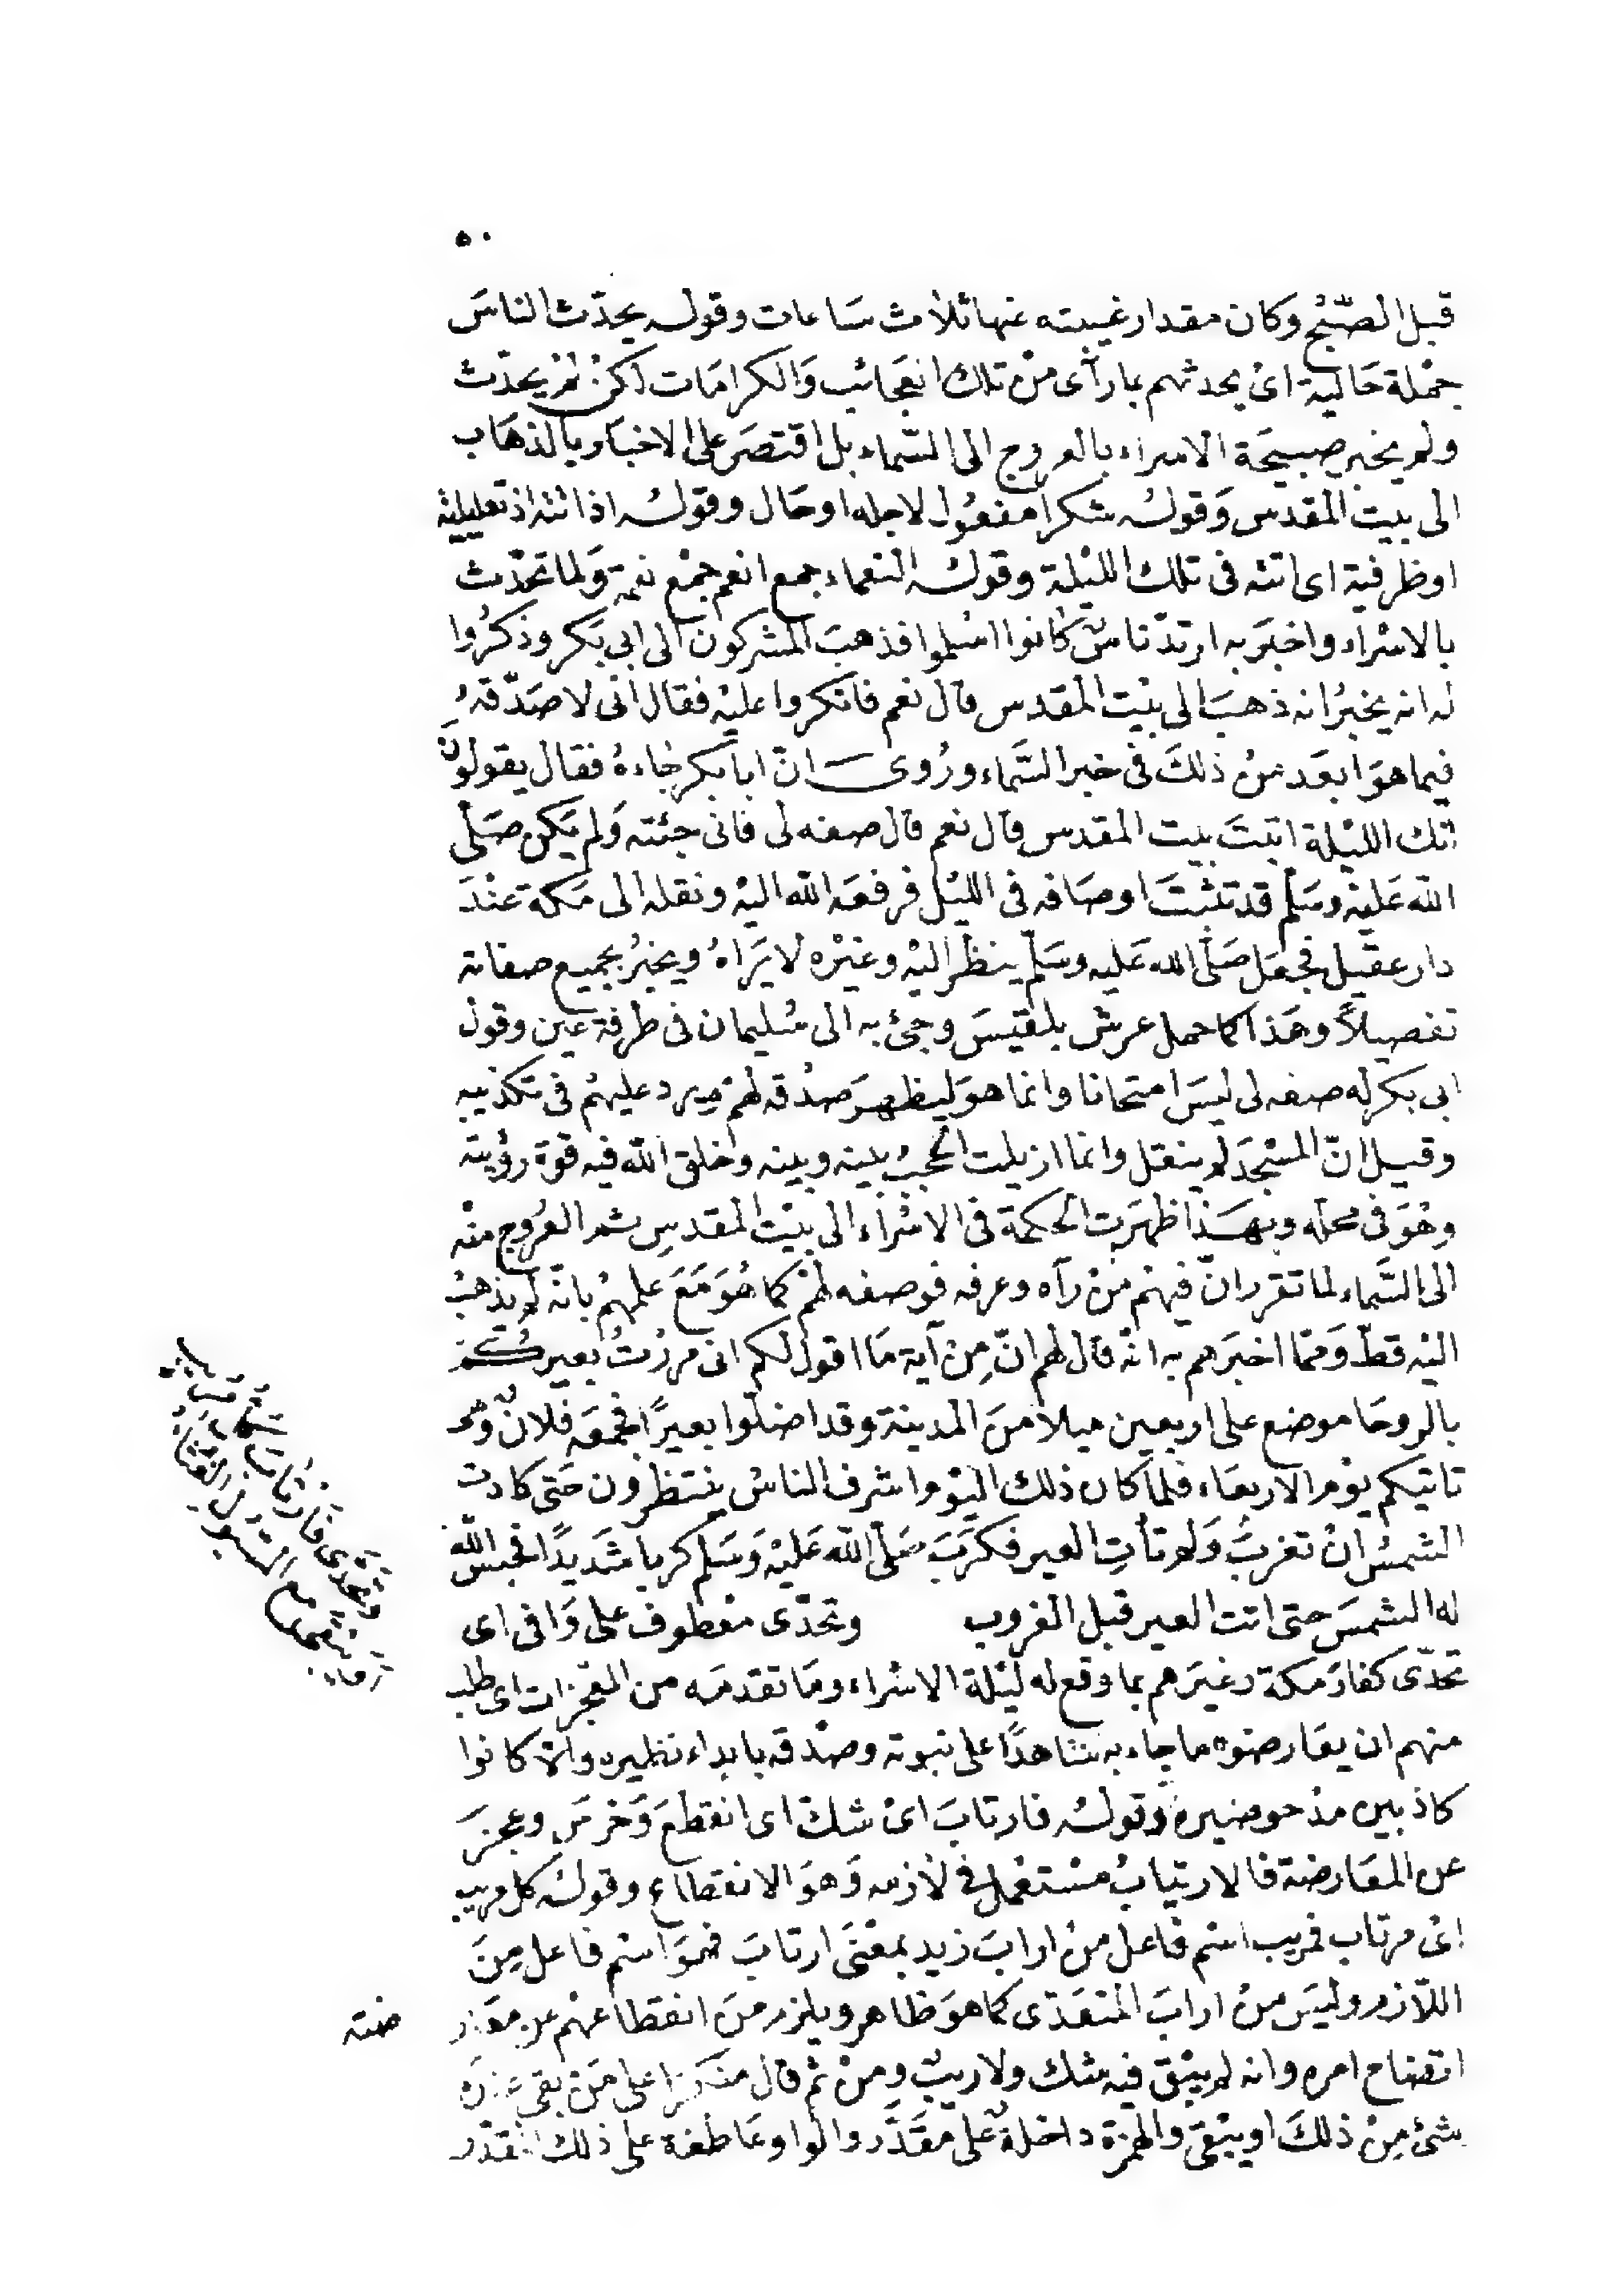 ٥٠
قبل الصّبح وكان مقدار غيبته عنها ثلاث ساعات وقوله يحدّث الناسَ
جمْلة حَالية اىْ يحدثهم بما رآى منْ تلك العجَائب وَالكرامَات لكنْ لمْ يحدّث
ولم يخبر صبيحَة الاسراء بالعروج الى السّماء بل اقتصَر على الاخبَار بالذهَاب
الى بيت المقدس وَقولهُ شكرا مفعُول لاجله اوحَال وقولهُ اذ اتته اذ تعليلية
اوظرفية اى اتته فى تلك الليْلة وقولهُ النعماء جمع انعم جمْع نعمة وَلما تحَدّث
بالاسْراء واخبَر به ارتدّ ناسٌ كانوا اسْلموا فذهبَ المشركون الى ابى بَكر وذكرُوا
له انه يخبرُ انه ذهبَ الى بيْت المقدس قال نعم فانكروا عليْه فقال انى لاصَدّقهُ
فيما هوَ ابعَد منْ ذلكَ فى خبر السَّماء ورُوى انّ ابا بكر جَاءهُ فقال يقولونَ
انك الليْلة اتيتَ بيت المقدس قال نعم قال صفه لى فانى جئته وَلم يَكنْ صَلى
الله عَليْه وسَلم قد تثبتَ اوصَافه فى الليْل فرفعَه الله اليْه ونقله الى مَكة عنْدَ
دار عقيْل فجعَل صَلّى الله عَليه وسَلّم ينظر اليْه وغيْره لا يَرَاهُ ويخبرُ بجميع صفاته
تفصيلاً وهَذا كما حمل عرش بلقيسَ وجئ به الى سُليمان فى طرفة عين وقول
ابى بكر له صفه لى ليسَ امتحانا وانما هوَ ليظهرَ صدْقه لهمْ ويرد عليهُم فى تكذيبه
وقيل انّ المسْجدَ لم ينقل وانما ازيلت الحجبُ بينه وبينه وخلق الله فيه قوّة رؤيته
وهُوَ فى محله وبهَذا ظهرَت الحكمة فى الاسْرَاء الى بيْت المقدس ثم العرُوج منْه
الى السَّماء لما تقرر انّ فيهمْ منْ رآه وعرفه فوصفه لهمْ كما هُوَ مَعَ علمهُم بانّه لم يذهبْ
اليْه قطّ وَممّا اخبرَهم به انّه قال لهم انّ مِنْ آية مَا اقول لكم انى مررْتُ بعيركُمْ
بالروحَا موضع على اربعين ميلا منَ المدينة وقد اضلّوا بعيرًا فجمعَه فلانٌ وهىَ
تاتيكم يوْم الاربعَاء فلما كان ذلك اليَوْم اشرف الناسُ ينتظرون حَتى كادت
الشمسُ انْ تغربَ وَلم تأتِ العير فكرَبَ صَلّى الله عَليْه وَسَلم كربا شَديدًا فحبسَ الله
له الشمسَ حتى اتت العير قبل الغروب وتحَدّى معْطوف على وَافى اى
تحَدّى كفارَ مَكة وغيرَهم بما وقع له ليْلة الاسْراء ومَا تقدمَه من المعْجزات اى طلب
منهم ان يعَارضوه ما جاء به شاهدًا على نبوته وصدْقه بابداء نظيره والّا كانوا
كاذبين مدْحوضين وقولهُ فارتابَ اىْ شكّ اى انقطعَ وَخرسَ وعجزَ
عن المعَارضة فالارتيَابُ مسْتعْمل فى لازمه وَهوَ الانقطاع وقولهُ كل مريب
اىْ مرتاب فمريب اسْم فاعل منْ ارابَ زيد بمعْنَى ارتابَ فهوَ اسْم فاعل مِنَ
اللّازم وليَس منْ ارابَ المتعَدّى كما هوَ ظاهر ويلزم منَ انقطاعهمْ عن معَار ضته
اتضاح امره وانه لم يبْقَ فيه شك ولا ريْب ومنْ ثم قال منكرا على مَنْ بقى عندَه
شئ مِنْ ذلكَ اويبْقى والهمزة داخلة على مقَدَّر والواو عَاطفة على ذلك المقدّر
وَتَحَدَّى فَارتَابَ كُلُّ مُرِيبٍ
اَوَيَبْقَى مَعَ السّيُوْلِ الغُثَاءُ